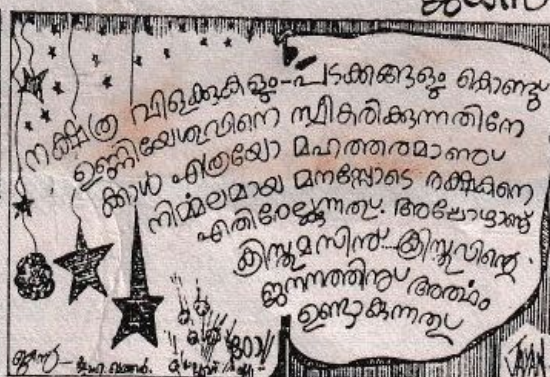 നക്ഷത്ര വിളക്കുകളും-പടക്കങ്ങളും കൊണ്ടു്
ഉണ്ണിയേശുവിനെ സ്വീകരിക്കുന്നതിനേ
ക്കാൾ എത്രയോ മഹത്തരമാണു്
നിർമ്മലമായ മനസ്സോടെ രക്ഷകനെ
എതിരേല്ക്കുന്നതു്. അപ്പോഴാണ്
ക്രിസ്തുമസിന്ന്-ക്രിസ്തുവിന്റെ
ജനനത്തിനു് അർത്ഥം
ഉണ്ടാകുന്നതു്